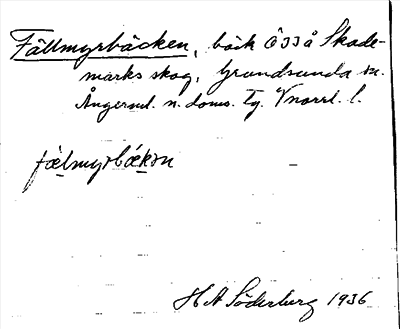 Fällmyrbäcken, bäck össå Skade-
marks skog, Grundsunda sn.
Ångerml. n. doms. Tg. Vnorrl. l.
fælmyrbækən
H A Söderberg 1936